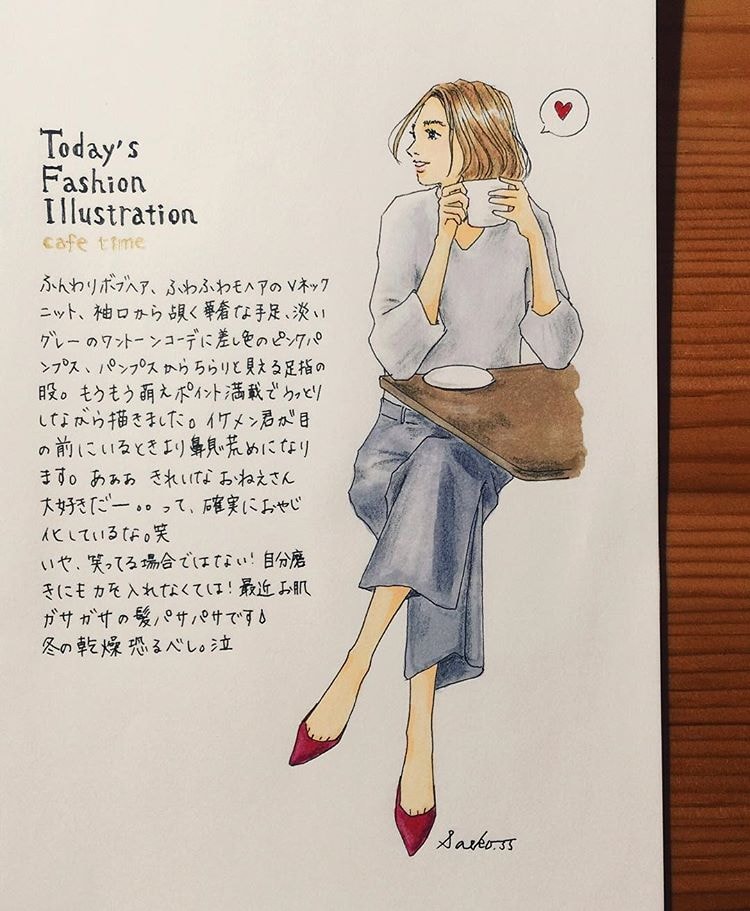 Today's
Fashion
Illustration
cafe time
ふんわりボブヘア、ふわふわモヘアのVネック
ニット、袖口から覗く華奢な手足、淡い
グレーのワントーンコーデに差し色のピンクパ
ンプス、パンプスからちらりと見える足指の
股。もうもう萌えポイント満載でうっとり
しながら描きました。イケメン君が目
の前にいるときより鼻息荒めになり
ます。あぁぉ きれいな おねえさん
大好きだー。。って、確実におやじ
化しているな。笑
いや、笑ってる場合ではない!自分磨
きにも力を入れなくては!最近お肌
ガサガサの髪パサパサです
冬の乾燥恐るべし。泣
Saeko.ss